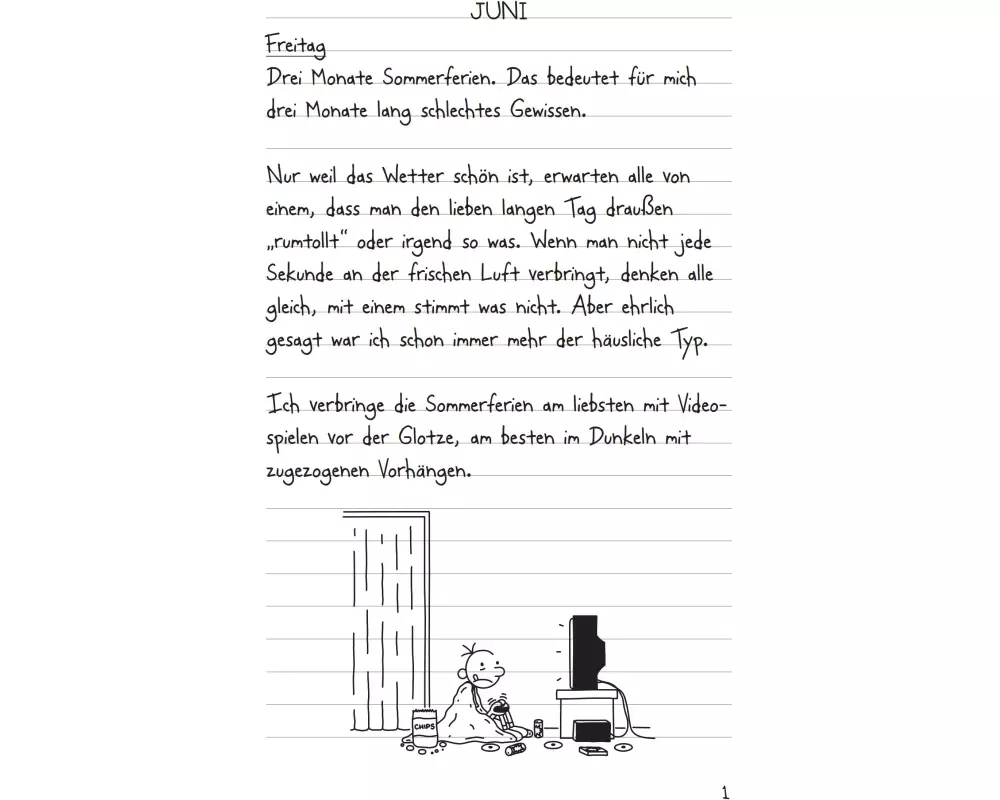 JUNI
Freitag
Drei Monate Sommerferien. Das bedeutet für mich
drei Monate lang schlechtes Gewissen.
Nur weil das Wetter schön ist, erwarten alle von
einem, dass man den lieben langen Tag draußen
„rumtollt“ oder irgend so was. Wenn man nicht jede
Sekunde an der frischen Luft verbringt, denken alle
gleich, mit einem stimmt was nicht. Aber ehrlich
gesagt war ich schon immer mehr der häusliche Typ.
Ich verbringe die Sommerferien am liebsten mit Video-
spielen vor der Glotze, am besten im Dunkeln mit
zugezogenen Vorhängen.
CHIPS
1